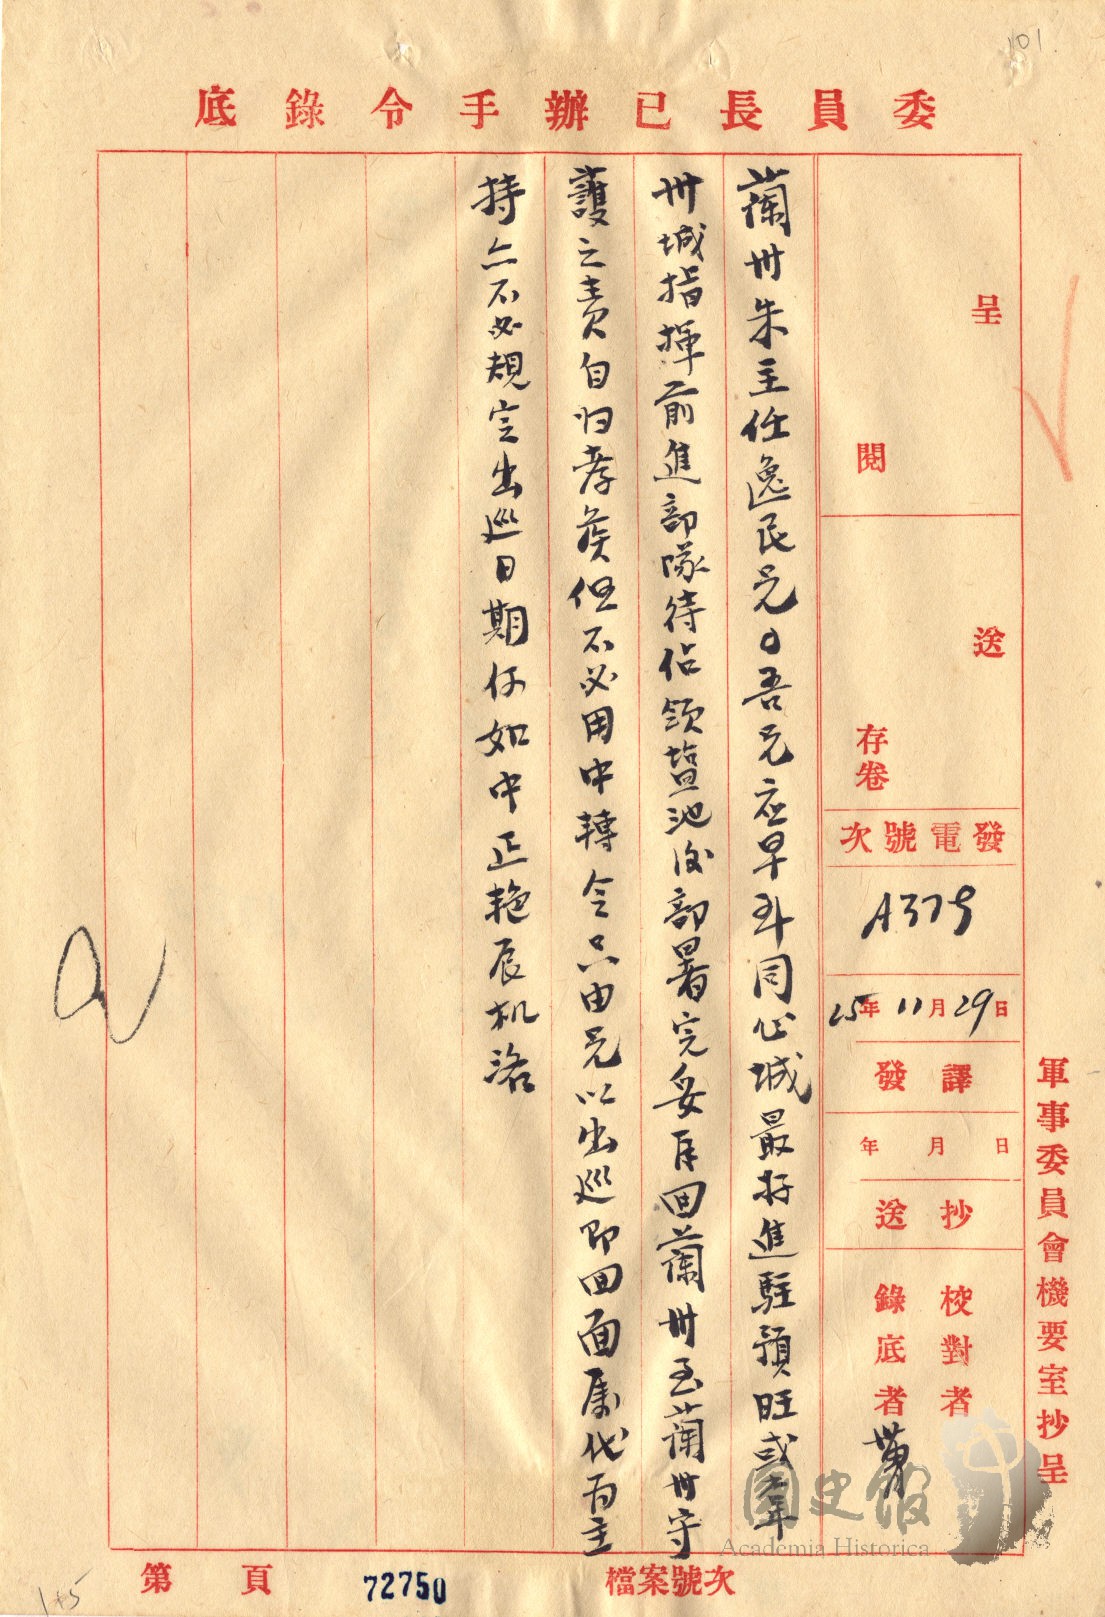 101
委員長已辦手令錄底
呈
閱
送
存卷
發電號次
A379
25年11月29日
譯發
年 月 日
抄送
校對者
錄底者
軍事委員會機要室抄呈
蘭州朱主任逸民兄。吾兄應早到同心城最好進駐預旺或韋
州城指揮前進部隊待佔領塩池後部署完妥再回蘭州至蘭州守
護之責自归孝侯但不必用中轉令只由兄以出巡即回面属代为主
持亦不必規定出巡日期何如中正艳辰机洛
第 頁
72750
檔案號次
145
國史館
Academia Historica